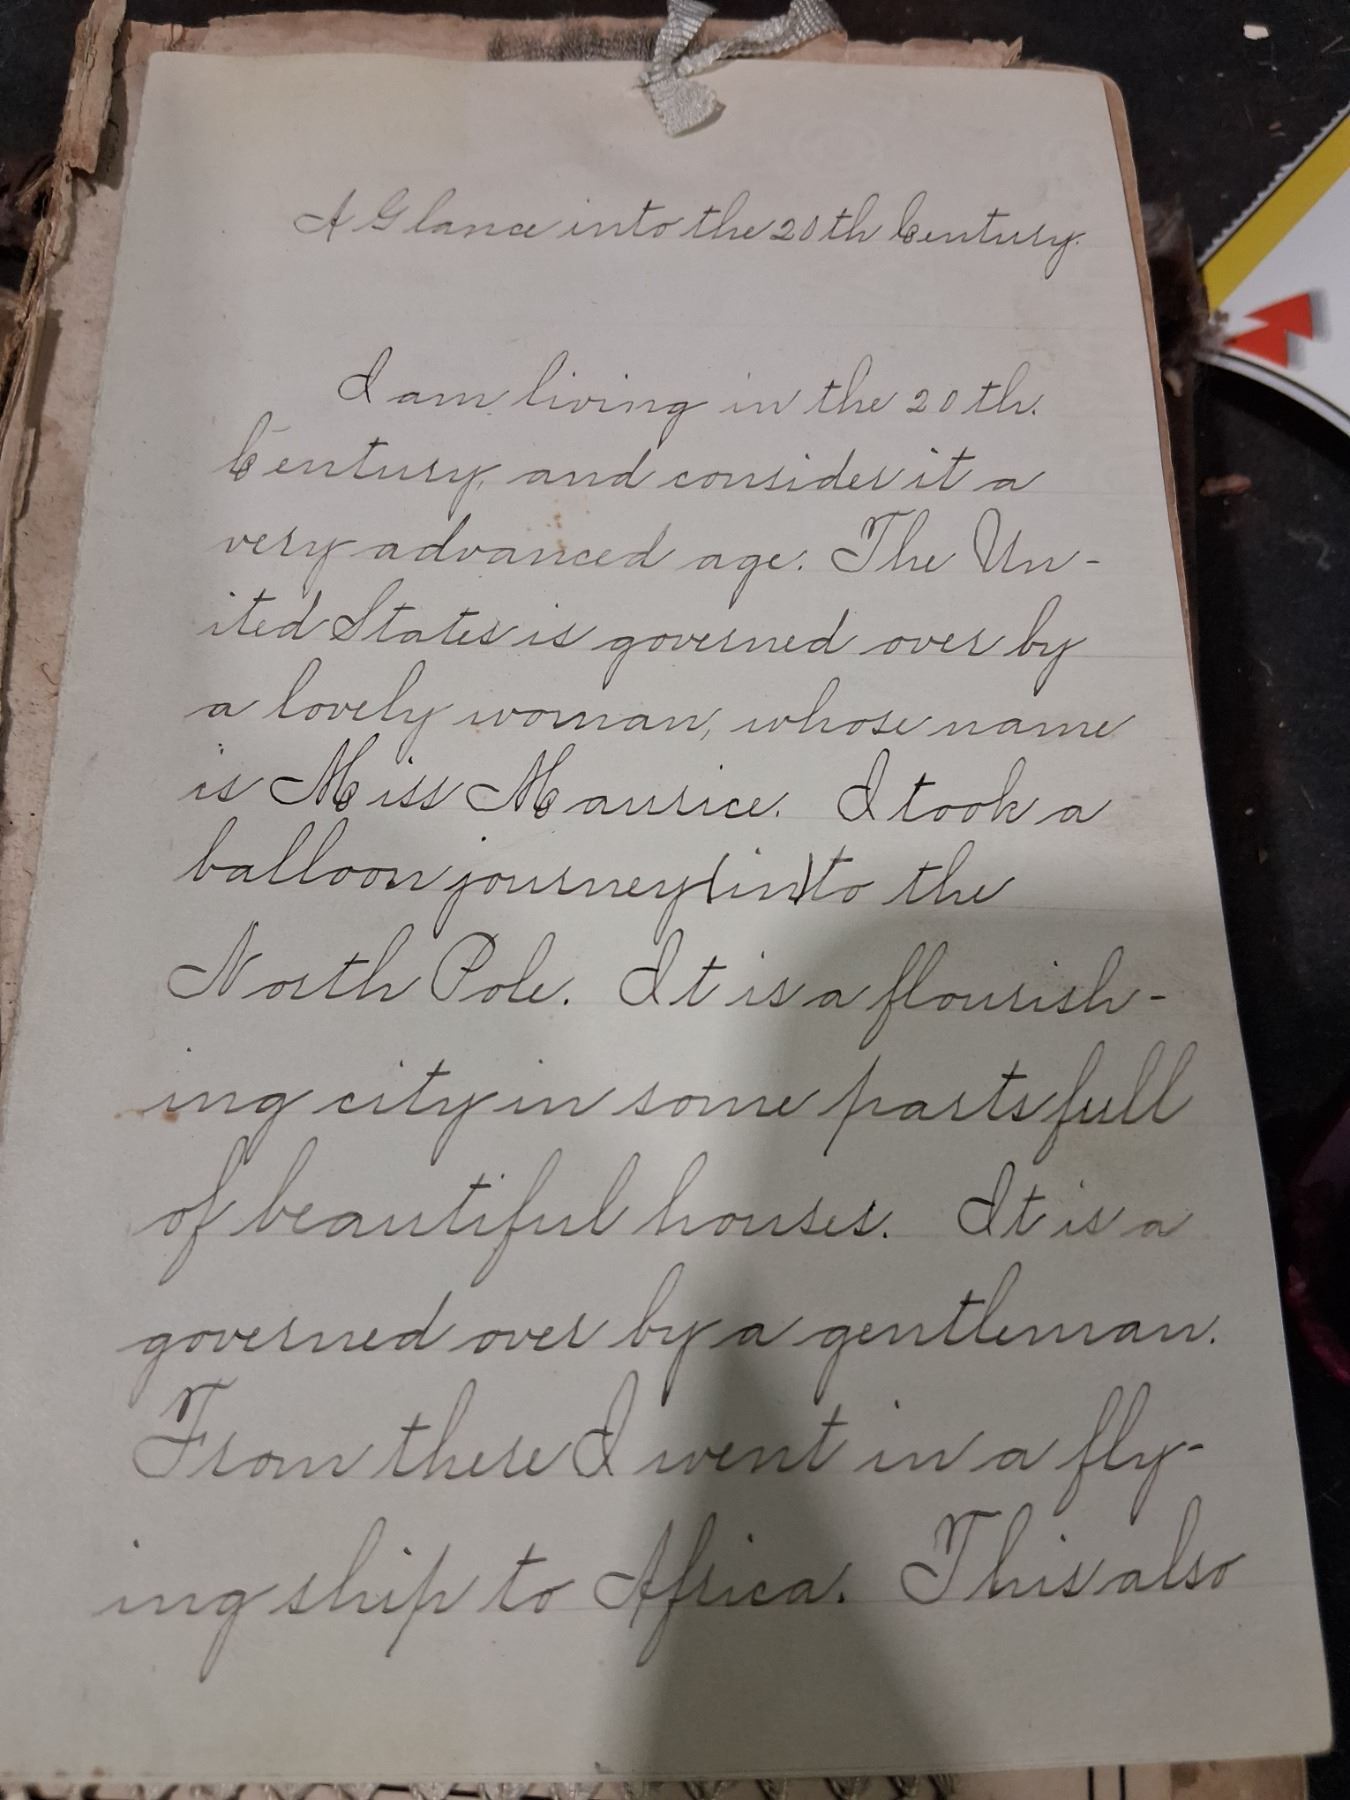 A Glance into the 20th Century.
I am living in the 20th.
Century, and consider it a
very advanced age. The Un-
ited States is governed over by
a lovely woman, whose name
is Miss Maurice. I took a
balloon journey (in) to the
North Pole. It is a flourish-
ing city in some parts full
of beautiful houses. It is a
governed over by a gentleman.
From there I went in a fly-
ing ship to Africa. This also